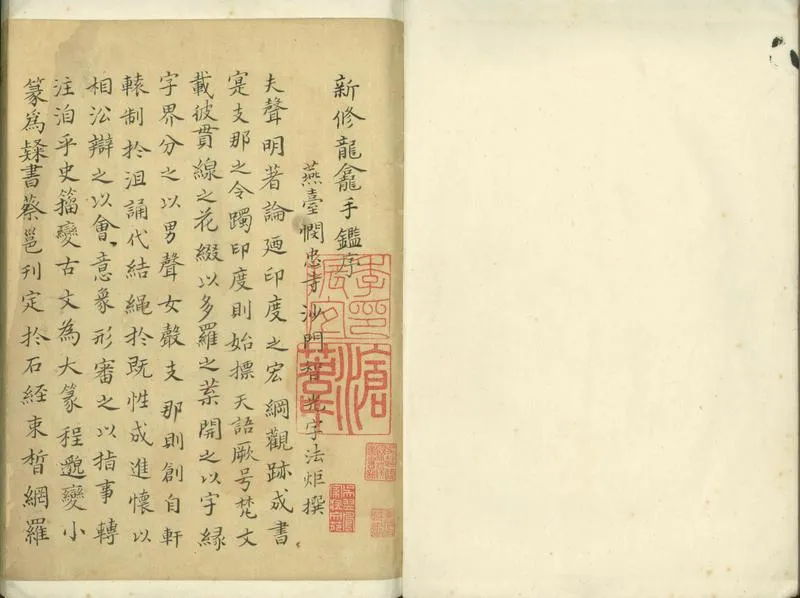 新修龍龕手鑑序
燕臺憫忠寺沙門智光字法炬撰
夫聲明著論廼印度之宏綱觀跡成書
寔支那之令躅印度則始標天語厥号梵文
載彼貫線之花綴以多羅之葉開之以字縁
字界分之以男聲女聲支那則創自軒
轅制於沮誦代結繩於既性成進懷以
相沿辯之以會意象形審之以指事轉
注泊乎史籀變古文為大篆程邈變小
篆為隸書蔡邕刊定於石経束皙網羅
滄葦